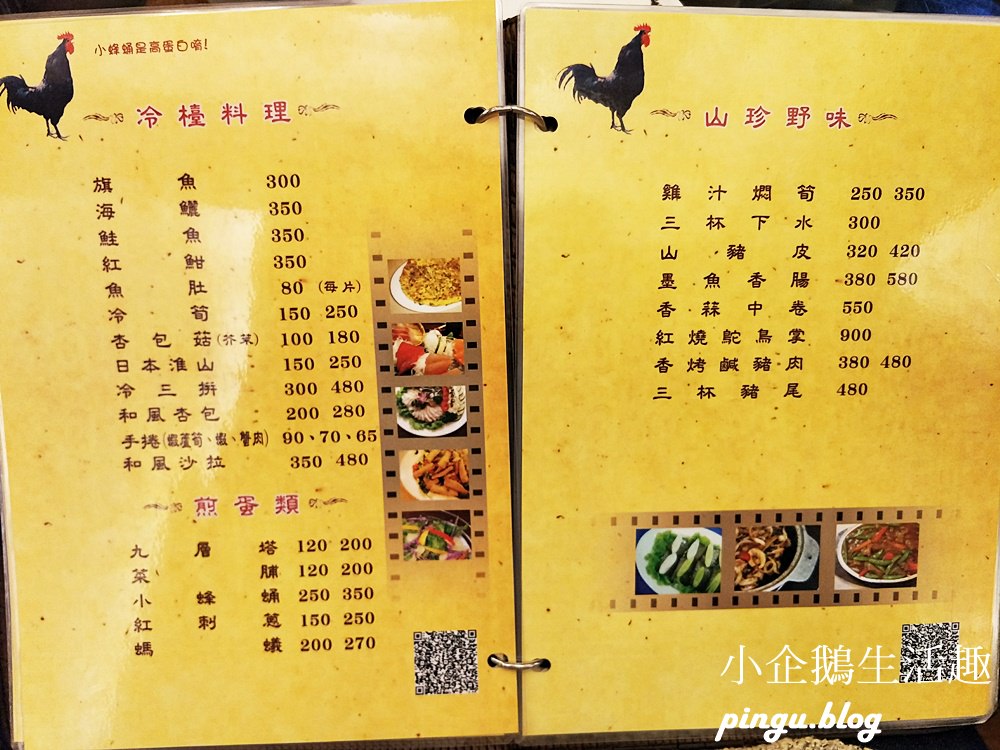 小蜂蛹是高蛋白唷!
冷檯料理
旗魚 300
海鱺 350
鮭魚 350
紅魽 350
魚肚 80 (每片)
冷筍 150 250
杏包菇(芥菜) 100 180
日本淮山 150 250
冷三拼 300 480
和風杏包 200 280
手捲(蝦蘆筍、蝦、蟹肉) 90、70、65
和風沙拉 350 480
煎蛋類
九層塔 120 200
菜脯 120 200
小蜂蛹 250 350
紅刺蔥 150 250
螞蟻 200 270
山珍野味
雞汁燜筍 250 350
三杯下水 300
山豬皮 320 420
墨魚香腸 380 580
香蒜中卷 550
紅燒鴕鳥掌 900
香烤鹹豬肉 380 480
三杯豬尾 480
小企鵝生活趣
pingu.blog